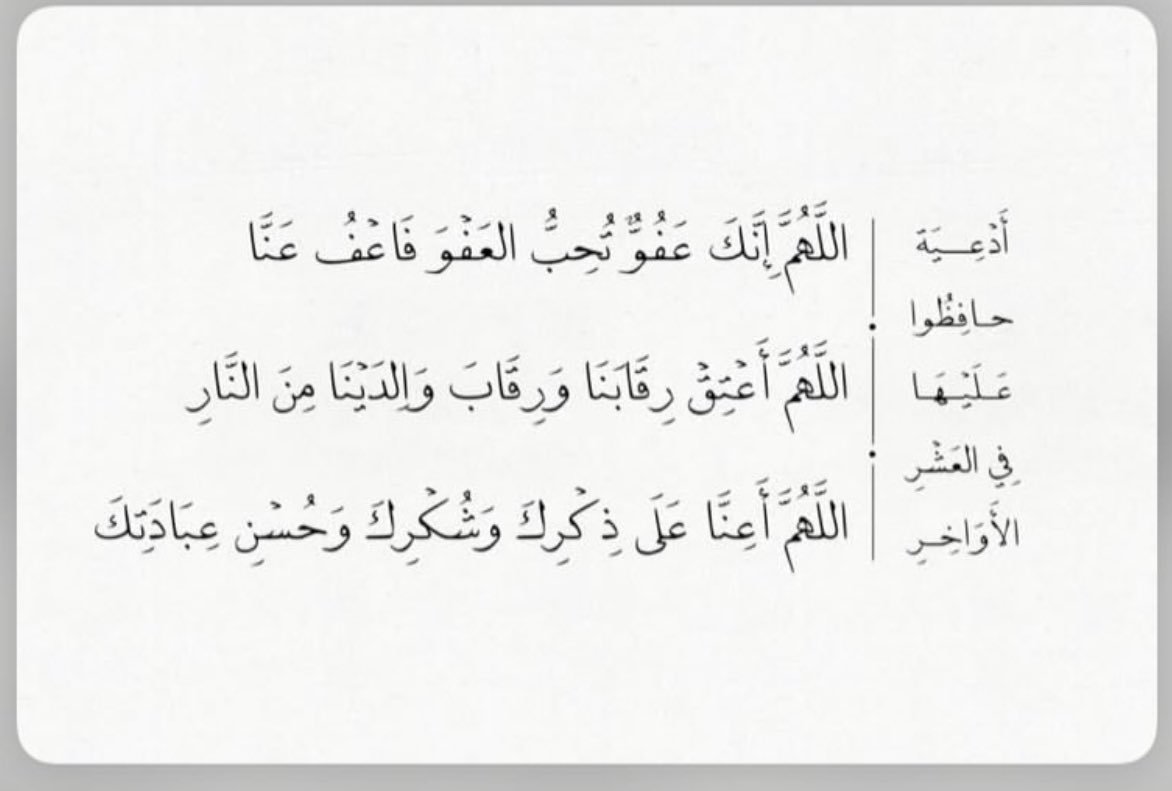 أَدْعِيَة
حافِظُوا
عَلَيْهَا
فِي العَشْرِ
الأَوَاخِرِ
اللَّهُمَّ إِنَّكَ عَفُوٌّ تُحِبُّ العَفْوَ فَاعْفُ عَنَّا
اللَّهُمَّ أَعْتِقْ رِقَابَنَا وَرِقَابَ وَالِدَيْنَا مِنَ النَّارِ
اللَّهُمَّ أَعِنَّا عَلَى ذِكْرِكَ وَشُكْرِكَ وَحُسْنِ عِبَادَتِكَ